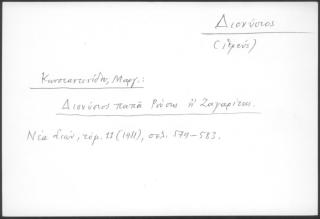 Διονύσιος
(ἱερεύς)
Κωνσταντινίδης, Μαργ.:
Διονύσιος παπᾶ Ρώσση ἢ Ζαγαρίτης.
Νέα Σιών, τόμ. 11 (1911), σελ. 579-583.